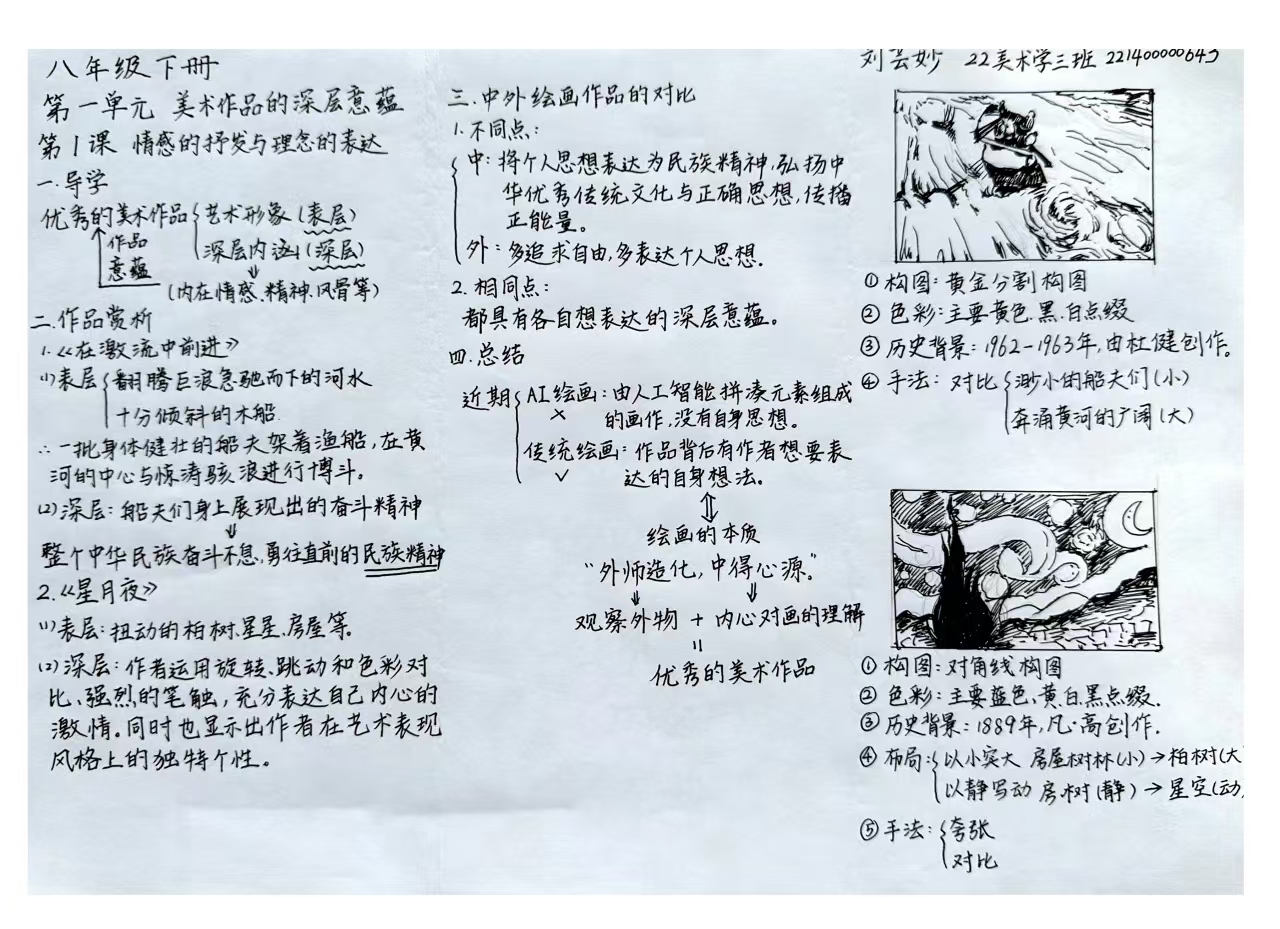 八年级下册
第一单元 美术作品的深层意蕴
第1课 情感的抒发与理念的表达
一.导学
优秀的美术作品 艺术形象(表层)
深层内涵(深层)
作品
意蕴
(内在情感、精神、风骨等)
二.作品赏析
1.《在激流中前进》
(1)表层 翻腾巨浪急驰而下的河水
十分倾斜的木船.
∴一批身体健壮的船夫架着渔船,在黄
河的中心与惊涛骇浪进行博斗。
(2)深层:船夫们身上展现出的奋斗精神
整个中华民族奋斗不息,勇往直前的民族精神
2.《星月夜》
(1)表层:扭动的柏树、星星、房屋等.
(2)深层:作者运用旋转、跳动和色彩对
比、强烈的笔触,充分表达自己内心的
激情。同时也显示出作者在艺术表现
风格上的独特个性。
三.中外绘画作品的对比
1.不同点:
中:将个人思想表达为民族精神,弘扬中
华优秀传统文化与正确思想,传播
正能量。
外:多追求自由,多表达个人思想.
2.相同点:
都具有各自想表达的深层意蕴。
四.总结
近期 AI绘画:由人工智能拼凑元素组成
× 的画作,没有自身思想。
传统绘画:作品背后有作者想要表
√ 达的自身想法。
绘画的本质
“外师造化,中得心源。”
观察外物 + 内心对画的理解
=
优秀的美术作品
刘芸妙 22美术学三班 221400000643
①构图:黄金分割构图
②色彩:主要黄色.黑.白点缀
③历史背景:1962-1963年,由杜健创作。
④手法:对比 渺小的船夫们(小)
奔涌黄河的广阔(大)
①构图:对角线构图
②色彩:主要蓝色、黄.白.黑点缀.
③历史背景:1889年,凡·高创作.
④布局: 以小突大 房屋树林(小)→柏树(大
以静写动 房.树(静)→星空(动)
⑤手法: 夸张
对比